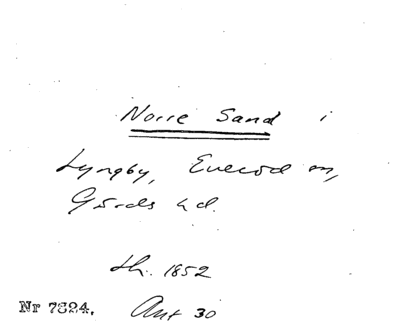 Norre Sand i
Lyngby, Everöd sn,
Gärds hd.
th. 1852
Nr 7824. Ant 30